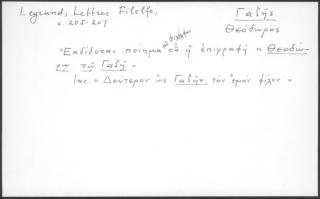 Legrand, Lettres Filelfe,
σ. 205-207
Γαζῆς
Θεόδωρος
Ἐκδίδεται ποίημα τοῦ Φιλέλφου οὗ ἡ ἐπιγραφὴ « Θεοδώ-
ρῳ τῷ Γαζῇ ».
« Δεύτερον ὡς Γαζῆν τὸν ἐμὸν φίλον »